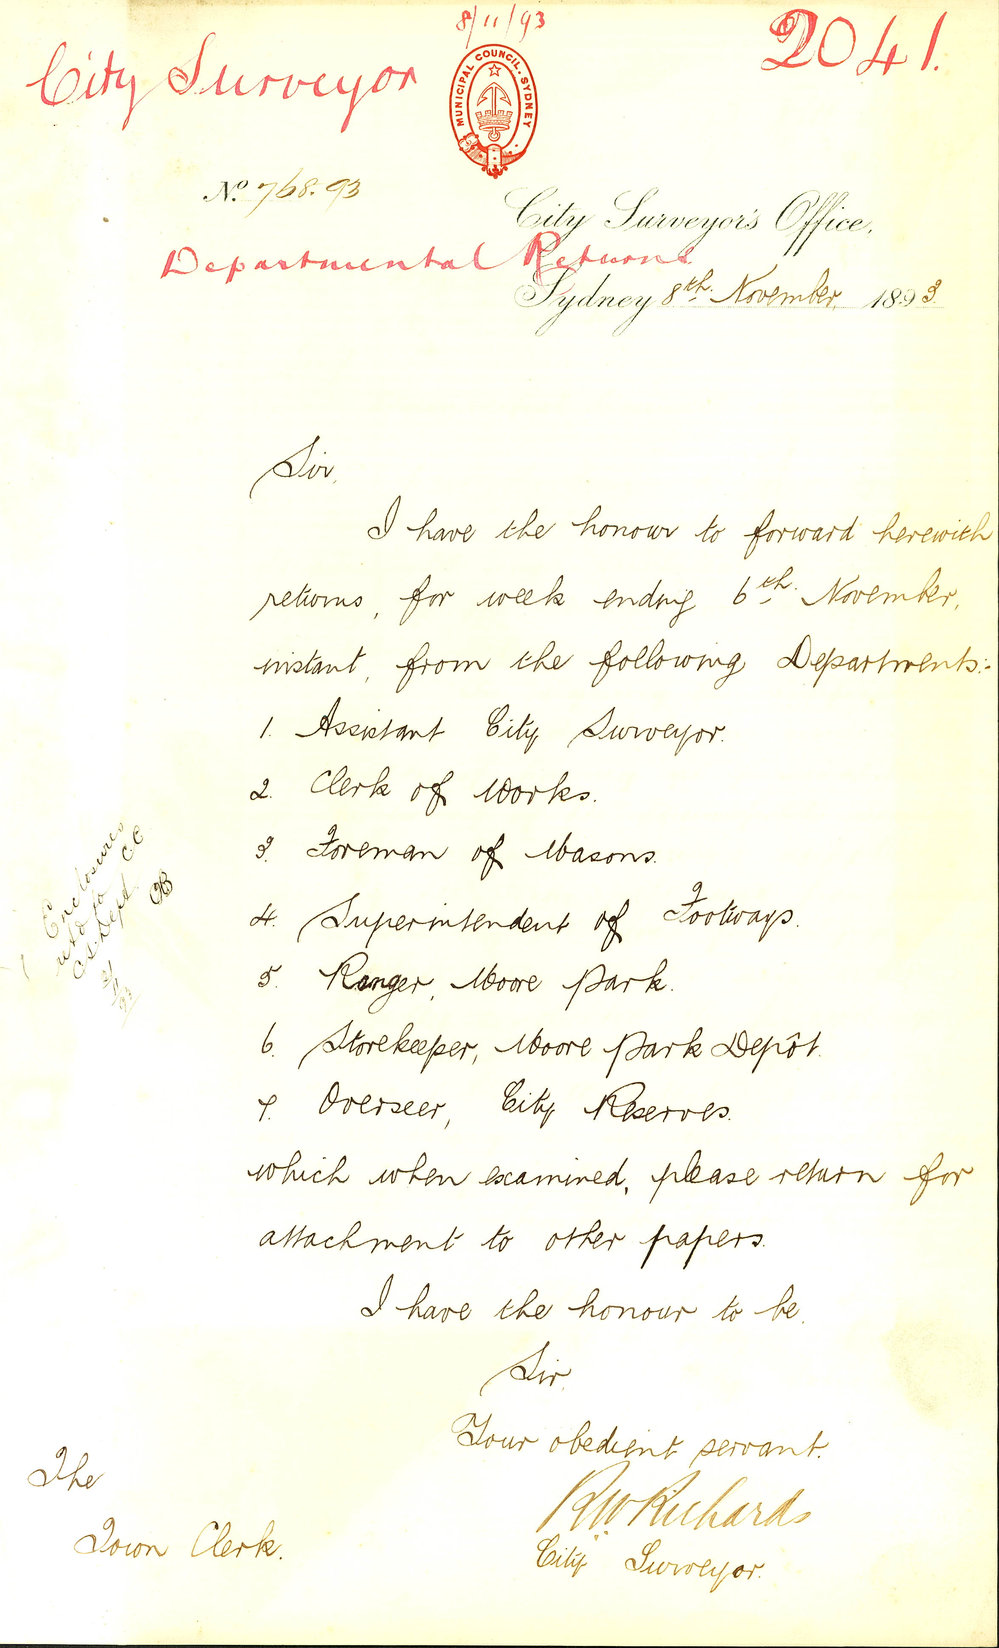 8/11/93
2041.
City Surveyor
MUNICIPAL COUNCIL. SYDNEY
No. 768.93
City Surveyor's Office,
Departmental Returns
Sydney 8th November 1893
Sir,
I have the honour to forward herewith
returns, for week ending 6th November,
instant, from the following Departments:-
1. Assistant City Surveyor.
2. Clerk of Works.
3. Foreman of Masons.
4. Superintendent of Footways.
5. Ranger, Moore Park.
6. Storekeeper, Moore Park Depôt.
7. Overseer, City Reserves.
which when examined, please return for
attachment to other papers.
I have the honour to be,
Sir,
Your obedient servant.
RW Richards
City Surveyor.
The
Town Clerk.
Enclosures
retd to
C.S. Dept